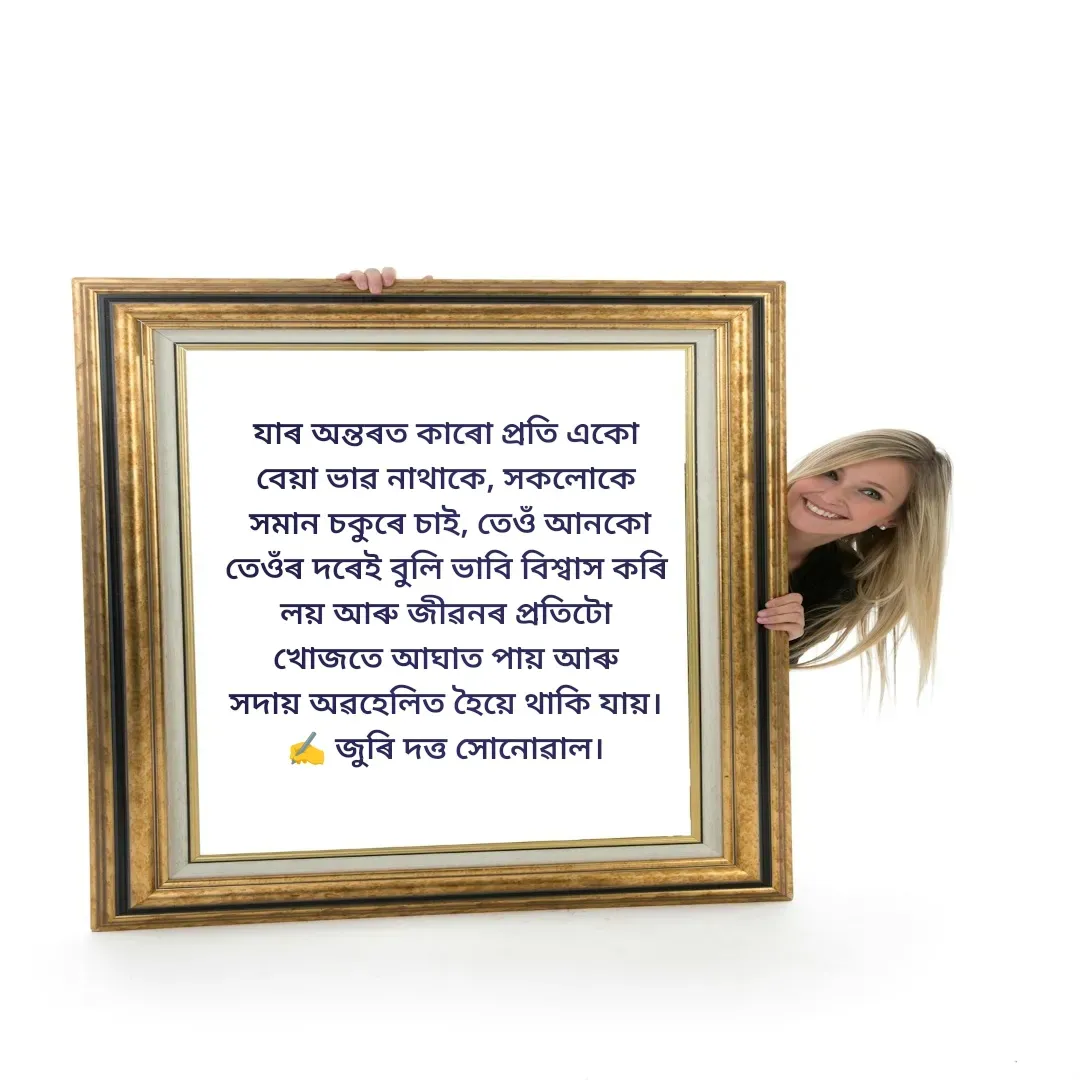 যাৰ অন্তৰত কাৰো প্ৰতি একো
বেয়া ভাৱ নাথাকে, সকলোকে
সমান চকুৰে চাই, তেওঁ আনকো
তেওঁৰ দৰেই বুলি ভাবি বিশ্বাস কৰি
লয় আৰু জীৱনৰ প্ৰতিটো
খোজতে আঘাত পায় আৰু
সদায় অৱহেলিত হৈয়ে থাকি যায়।
✍️ জুৰি দত্ত সোনোৱাল।